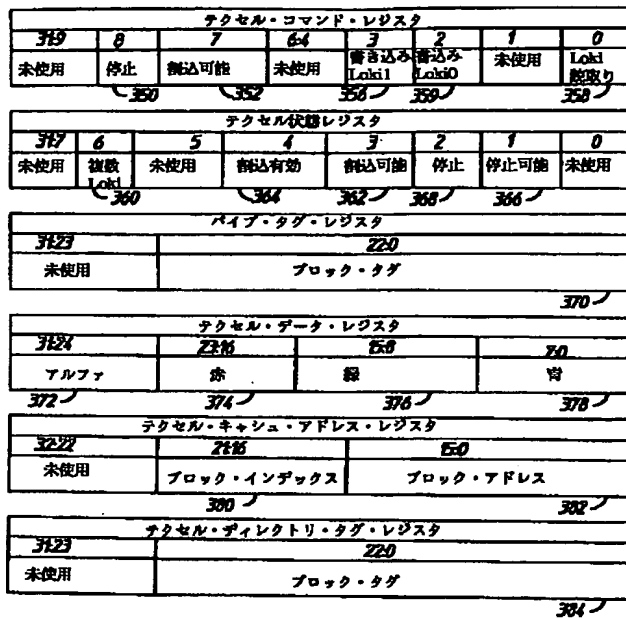 テクセル・コマンド・レジスタ
31:9 8 7 6:4 3 2 1 0
未使用 停止 割込可能 未使用 書き込み Loki1 書込み Loki0 未使用 Loki 読取り
350 352 356 359 358
テクセル状態レジスタ
31:7 6 5 4 3 2 1 0
未使用 複数 Loki 未使用 割込有効 割込可能 停止 停止可能 未使用
360 364 362 368 366
パイプ・タグ・レジスタ
31:23 22:0
未使用 ブロック・タグ
370
テクセル・データ・レジスタ
31:24 23:16 15:8 7:0
アルファ 赤 緑 青
372 374 376 378
テクセル・キャシュ・アドレス・レジスタ
32:22 21:16 15:0
未使用 ブロック・インデックス ブロック・アドレス
380 382
テクセル・ディレクトリ・タグ・レジスタ
31:23 22:0
未使用 ブロック・タグ
384